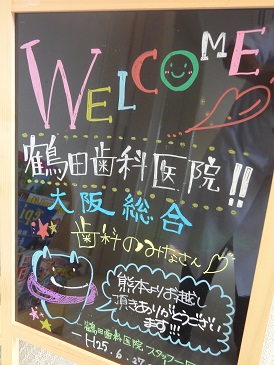 WELCOME
鶴田歯科医院!!
大阪総合
歯科のみなさん
熊本よりお越し
頂きありがとうござい
ます!!!
鶴田歯科医院スタッフ一同
H25.6.27